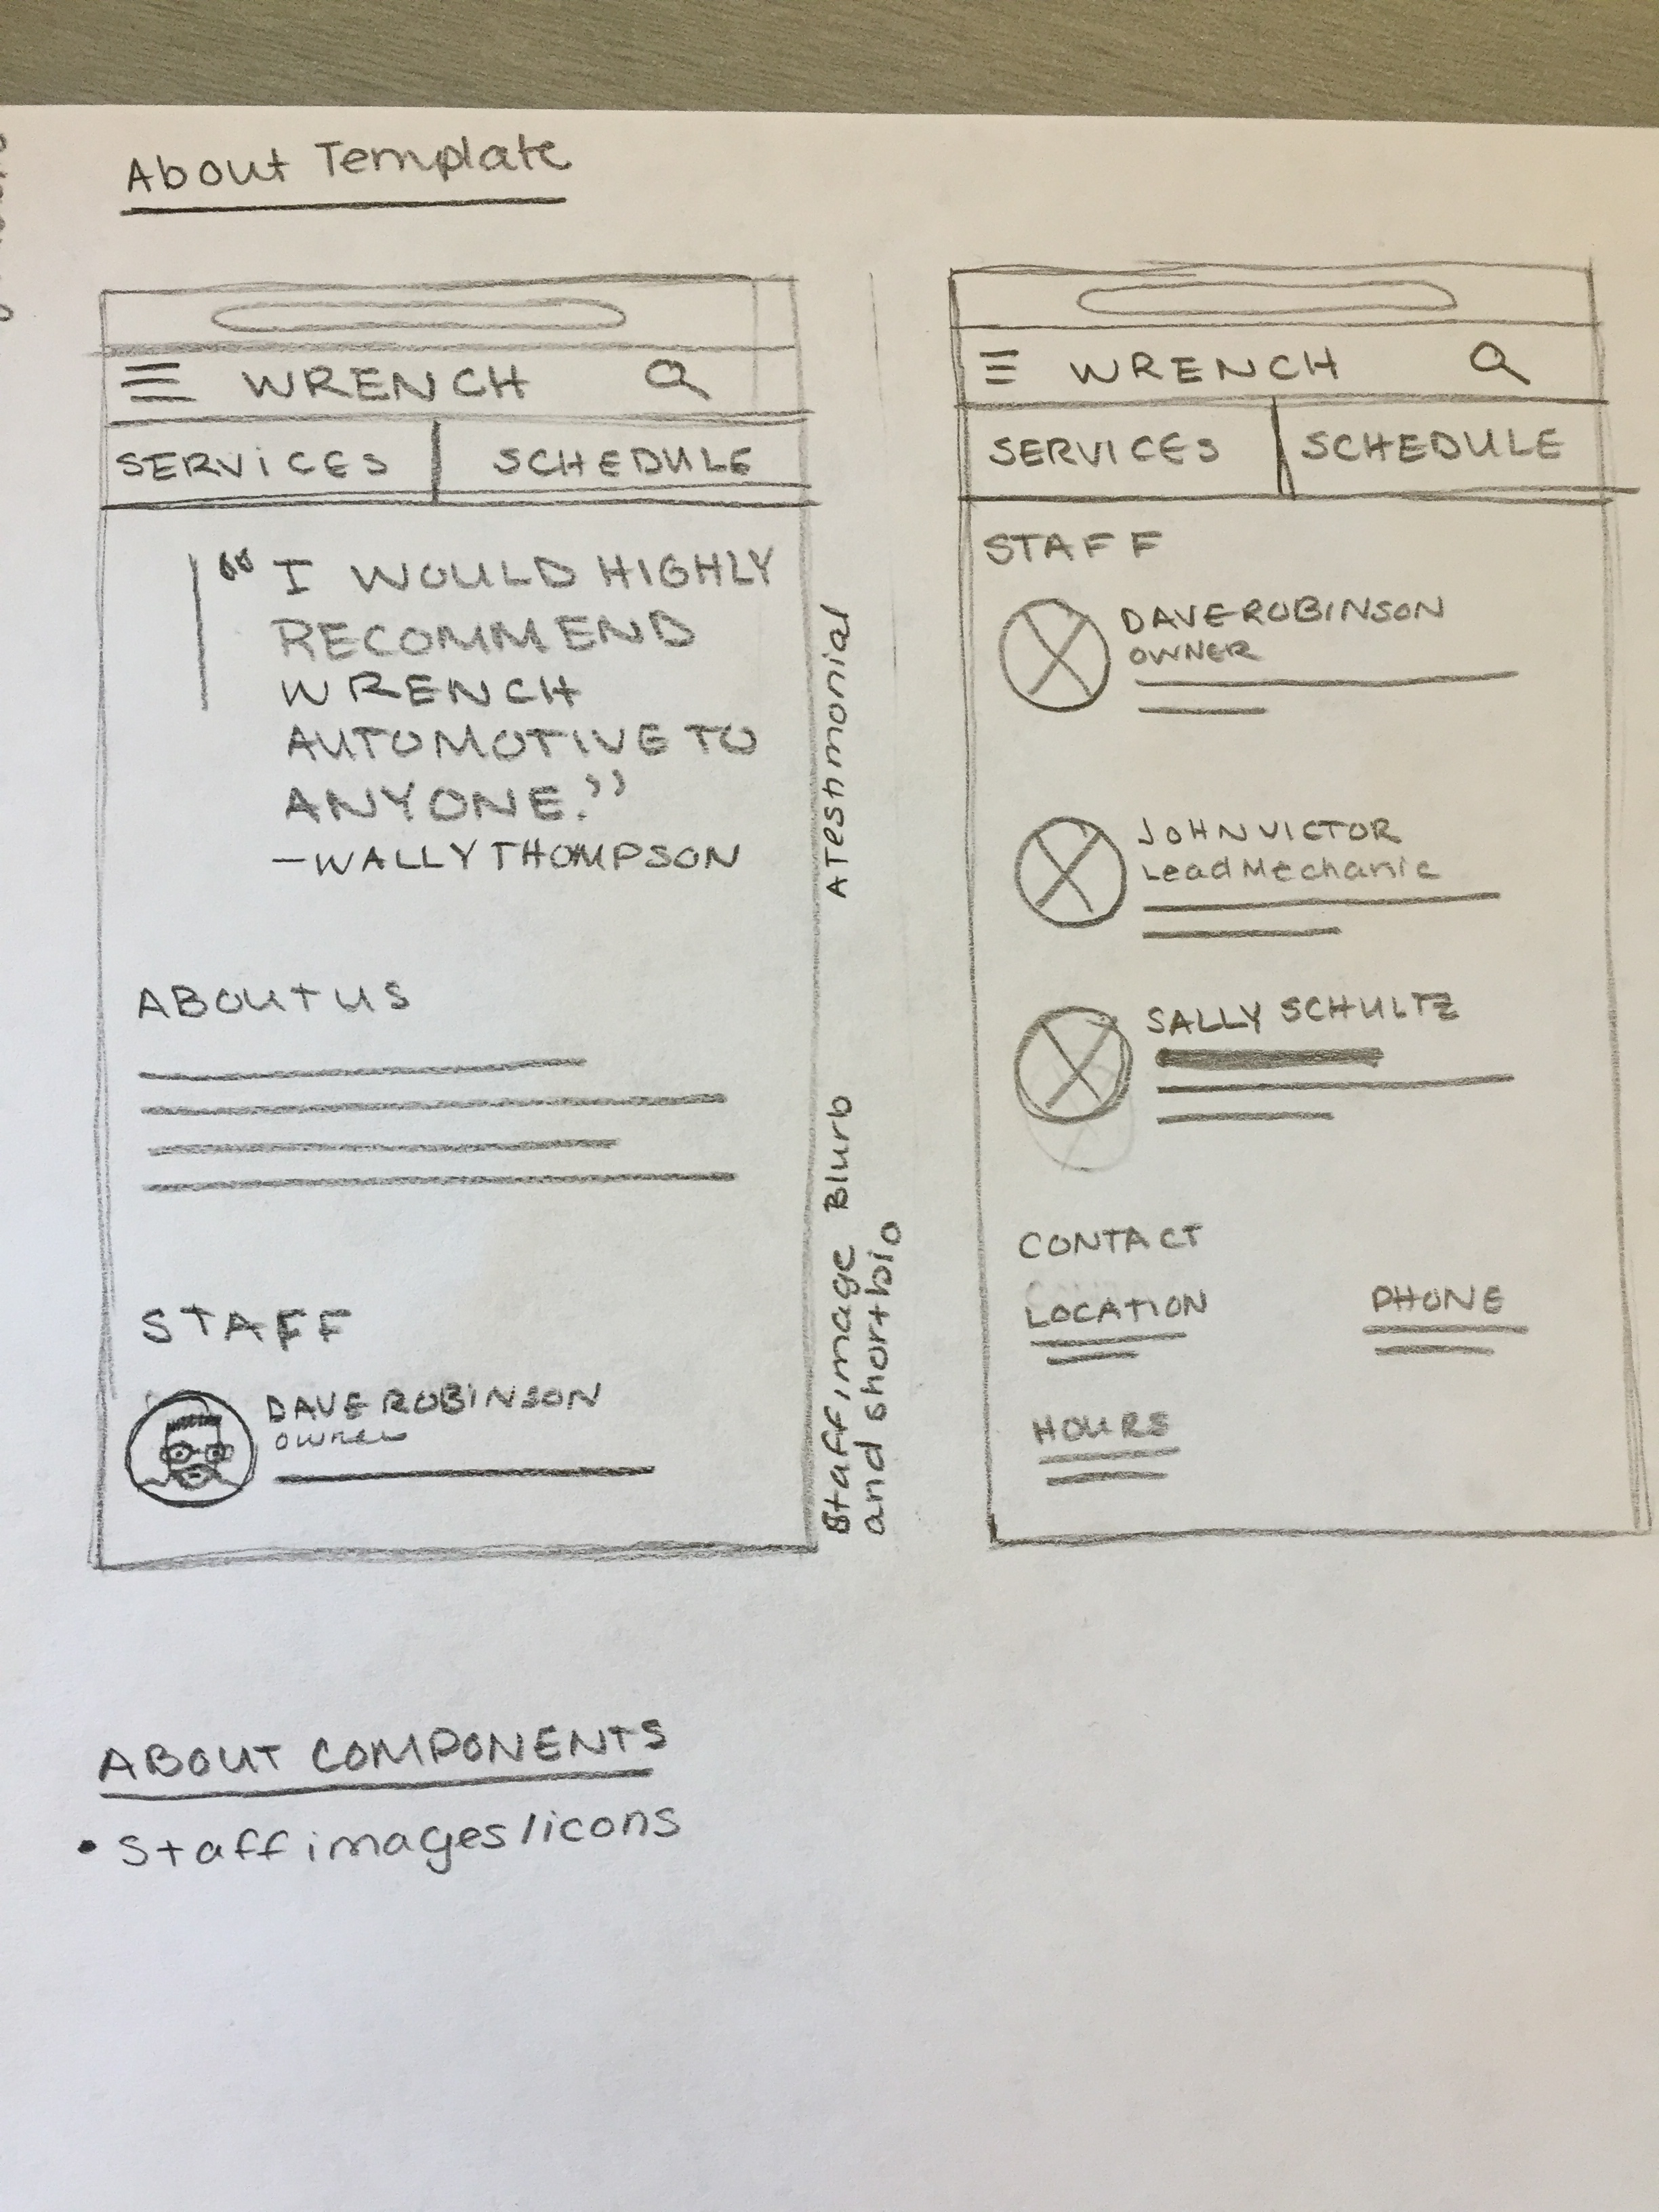 About Template
WRENCH
SERVICES SCHEDULE
“I WOULD HIGHLY
RECOMMEND
WRENCH
AUTOMOTIVE TO
ANYONE.”
—WALLY THOMPSON
ABOUT US
STAFF
DAVE ROBINSON
owner
A Testimonial
Blurb
Staff image
and short bio
WRENCH
SERVICES SCHEDULE
STAFF
DAVE ROBINSON
OWNER
JOHN VICTOR
Lead Mechanic
SALLY SCHULTZ
CONTACT
LOCATION PHONE
HOURS
ABOUT COMPONENTS
• Staff images/icons